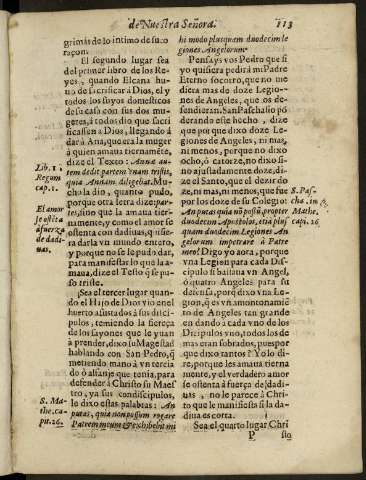 de Nuestra Señora.
113
grimas de lo intimo de su co
raçon.
El segundo lugar sea
del primer libro de los Re
yes, quando Elcana hu
uo de sacrificar à Dios, el y
todos los suyos domesticos
de su casa con sus dos mu
geres, à todos dio que sacri
ficassen a Dios, llegando à
dar à Ana, que era la muger
à quien amaua tiernamête,
dize el Texto: Anna au-
tem dedit partem vnam tristis,
quia Annam diligebat. Mu-
cho la dio, quanto pudo,
porque otra letra dize: par-
tes, sino que la amaua tier-
namente, y como el amor se
ostenta con dadiuas, quisie-
ra darla vn mundo entero,
y porque no se le pudo dar,
para manifestar lo que la a-
maua, dize el Testo q̃ se pu-
so triste.
Sea el tercer lugar quan-
do el Hijo de Dios vio en el
huerto asustados à sus disci
pulos, temiendo la fuerça
de los sayones que le yuan
à prender, dixo su Magestad
hablando con San Pedro, q̃
metiendo mano à vn tercia
do ò alfanje que tenia, para
defender à Christo su Maes
tro, ya sus condiscipulos,
le dixo estas palabras: An
putas, quia non possum rogare
Patrem meum & exhibebit mi
Lib. 1.
Regum
cap. 1.
El amor
se ostẽta
a fuerça
de dadi-
uas.
S. Ma-
the. ca-
pu. 26.
hi modo plusquam duodecim le
giones Angelorum.
Pensays vos Pedro que si
yo quisiera pedirà mi Padre
Eterno socorro, que no me
diera mas de doze Legio-
nes de Angeles, que os de-
fendieran. San Paschasio põ
derando este hecho, dize
que por que dixo doze Le
giones de Angeles, ni mas,
ni menos, porque no dixo
ocho, ò catorze, no dixo si-
no ajustadamente doze, di-
ze el Santo, que el dezir do
ze, ni mas, ni menos, que fue
por los doze de su Colegio:
An putas quia nõ possũ, propter
duodecim Apostolos, etiã plus
quam duodecim Legiones An
gelorum impetrare à Patre
meo? Digo yo aora, porque
vna Legion para cada Dis-
cipulo si bastaua vn Angel,
ò quatro Angeles para su
defensa, porq̃ dixo vna Le-
gion, q̃ es vn amontonamiẽ
to de Angeles tan grande
en dando a cada vno de los
Dicipulos vno, todos los de
mas eran sobrados, pues por
que dixo tantos? Yo lo di-
re, porque les amaua tierna
mente, y el verdadero amor
se ostenta à fuerça de dadi-
uas, no le parece à Chris-
to que le manifiesta si la da-
diua es corta.
Sea el quarto lugar Chri
S. Pas-
cha. in
Mathe.
capi. 26
P
sto